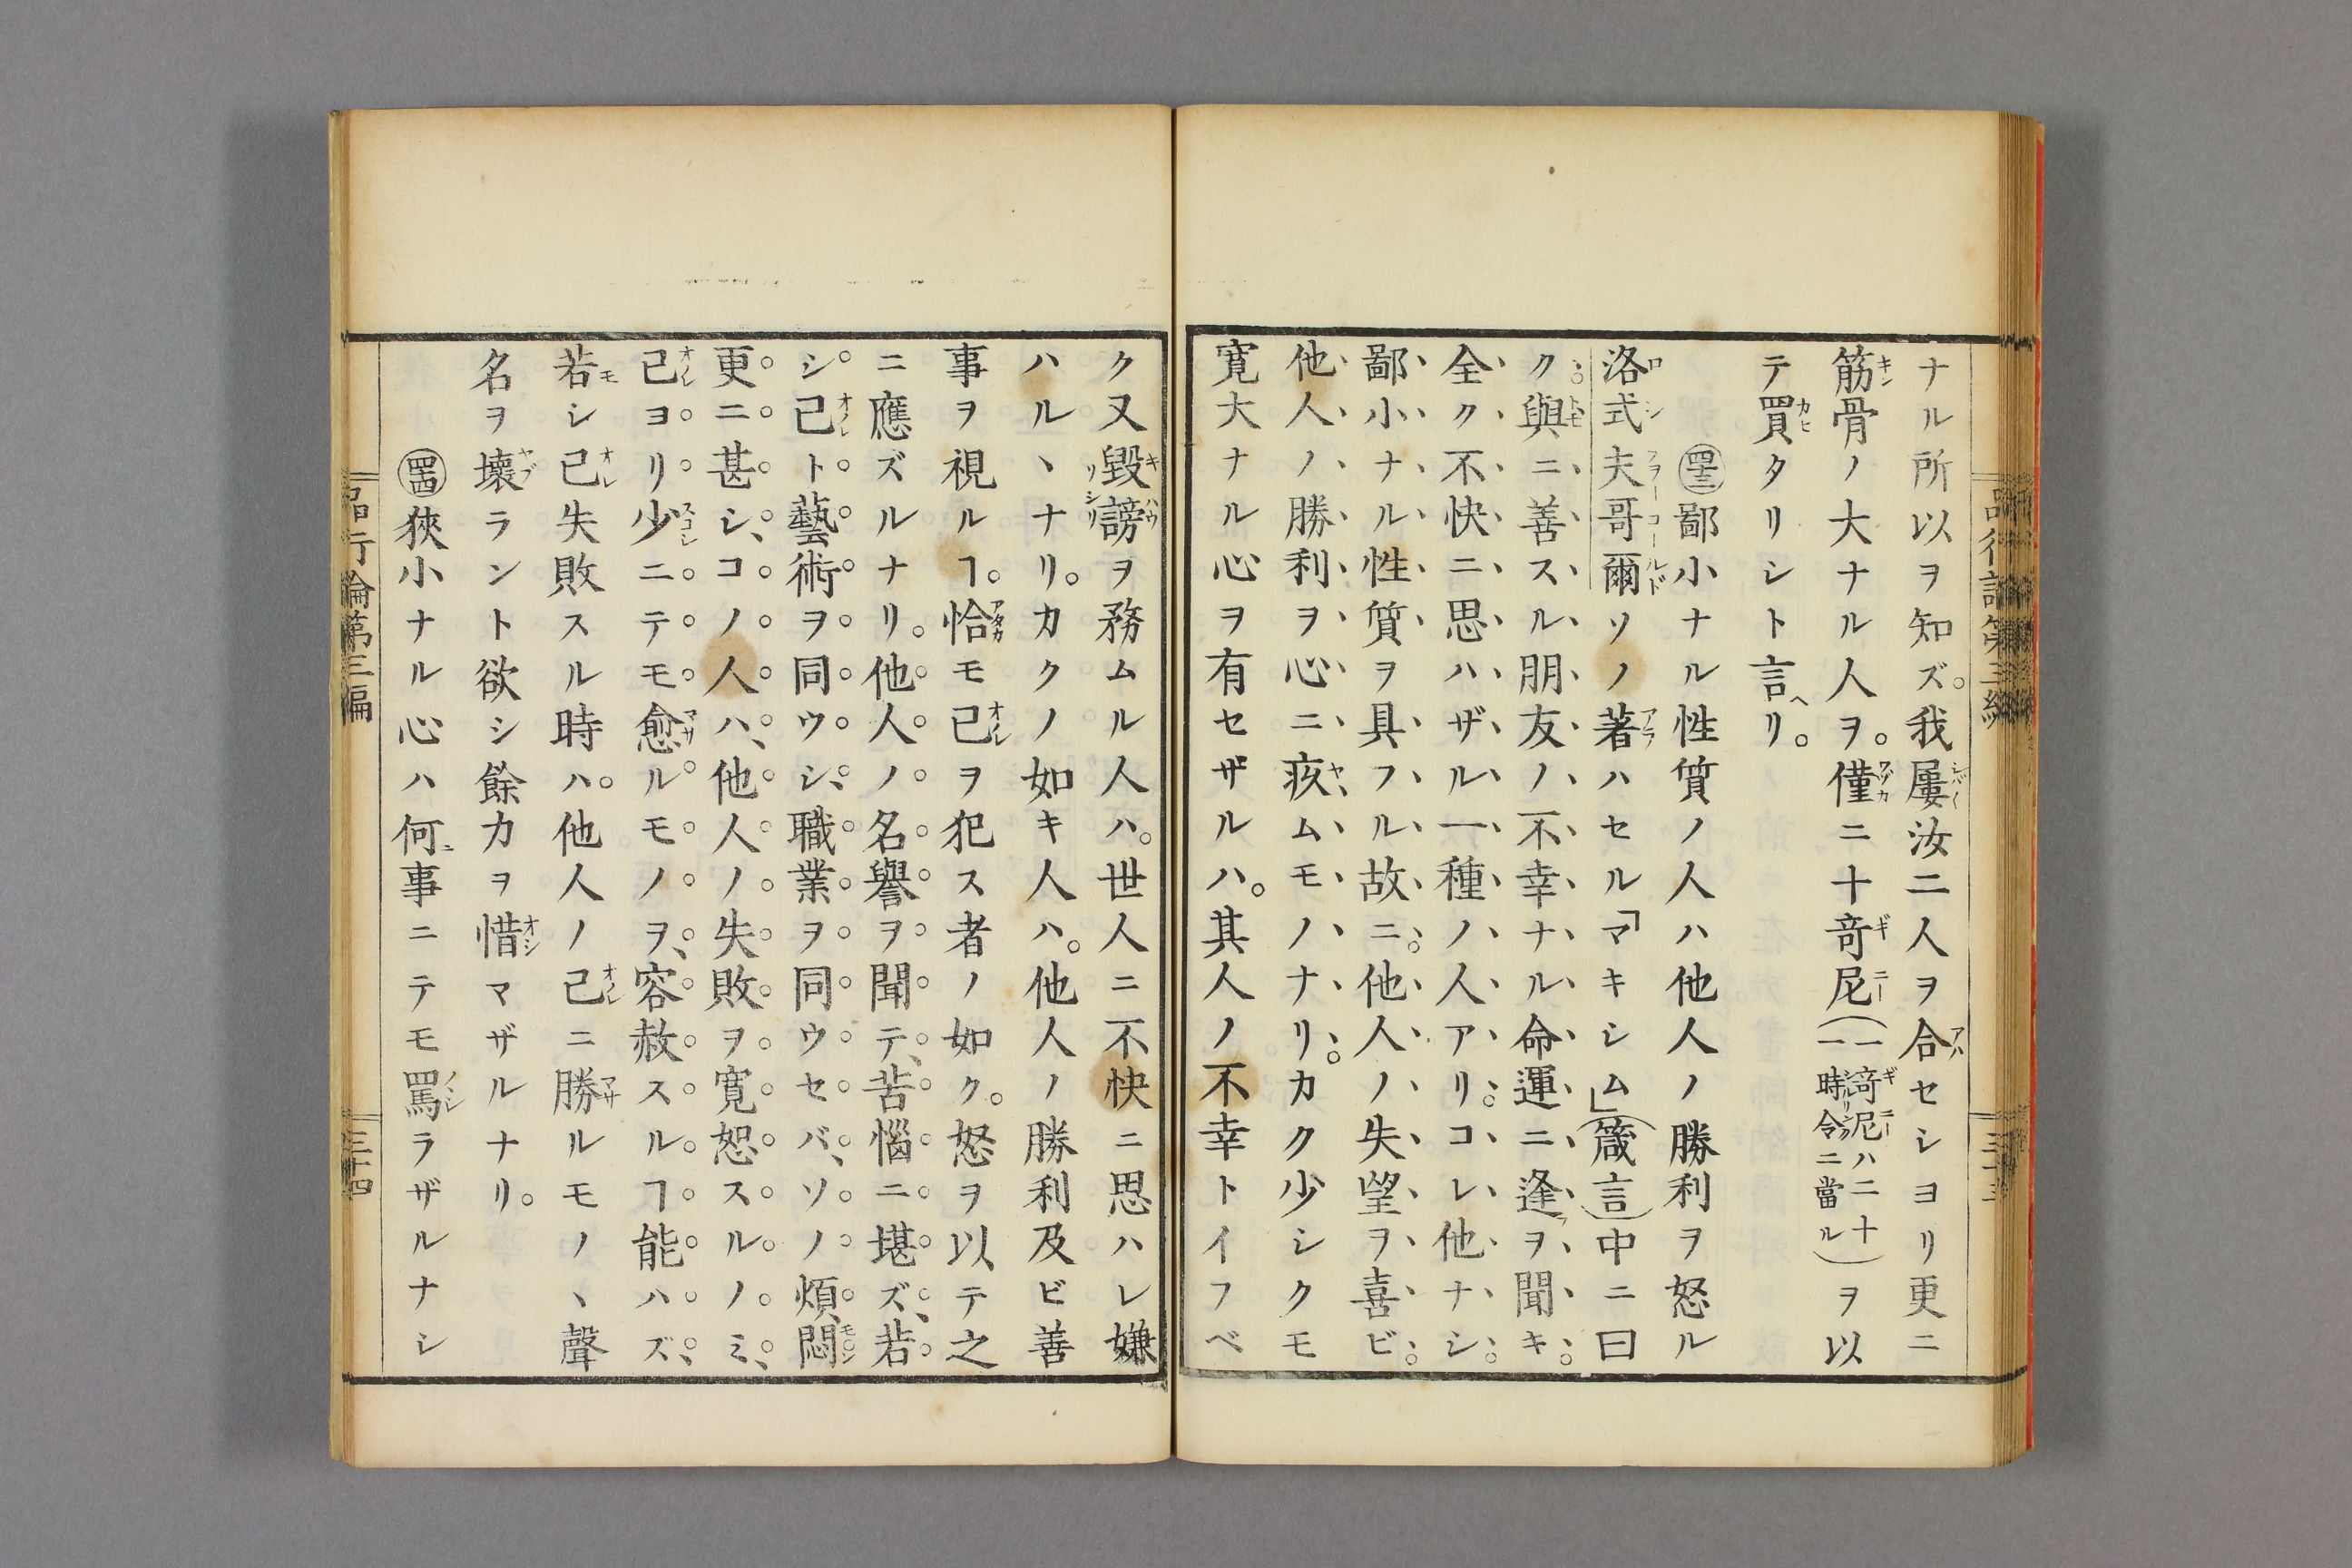 ナル所以ヲ知ズ。我屢汝二人ヲ合セシヨリ更ニ
筋骨ノ大ナル人ヲ。僅ニ十竒尼(一竒尼ハ二十一時令ニ當ル)ヲ以
テ買タリシト言ヘリ。
㊸鄙小ナル性質ノ人ハ他人ノ勝利ヲ怒ル
洛式夫哥爾ソノ著ハセル「マキシム」(箴言)中ニ曰
ク。與ニ善スル朋友ノ不幸ナル命運ニ逢ヲ聞キ。
全ク不快ニ思ハザル一種ノ人アリ。コレ他ナシ。
鄙小ナル性質ヲ具フル故ニ。他人ノ失望ヲ喜ビ。
他人ノ勝利ヲ心ニ疚ムモノナリ。カク少シクモ
寛大ナル心ヲ有セザルハ。其人ノ不幸トイフベ
品行論第三編
三十三
ク又毀謗ヲ務ムル人ハ。世人ニ不快ニ思ハレ嫌
ハルヽナリ。カクノ如キ人ハ。他人ノ勝利及ビ善
事ヲ視ルヿ。恰モ己ヲ犯ス者ノ如ク。怒ヲ以テ之
ニ應ズルナリ。他人ノ名譽ヲ聞テ、苦惱ニ堪ズ、若
シ己ト藝術ヲ同ウシ、職業ヲ同ウセバ、ソノ煩悶
更ニ甚シ、コノ人ハ、他人ノ失敗ヲ寛恕スルノミ、
己ヨリ少ニテモ愈ルモノヲ、容赦スルヿ能ハズ、
若シ己失敗スル時ハ。他人ノ己ニ勝ルモノヽ聲
名ヲ壞ラント欲シ餘力ヲ惜マザルナリ。
㊹狹小ナル心ハ何事ニテモ罵ラザルナシ
品行論第三編
三十四